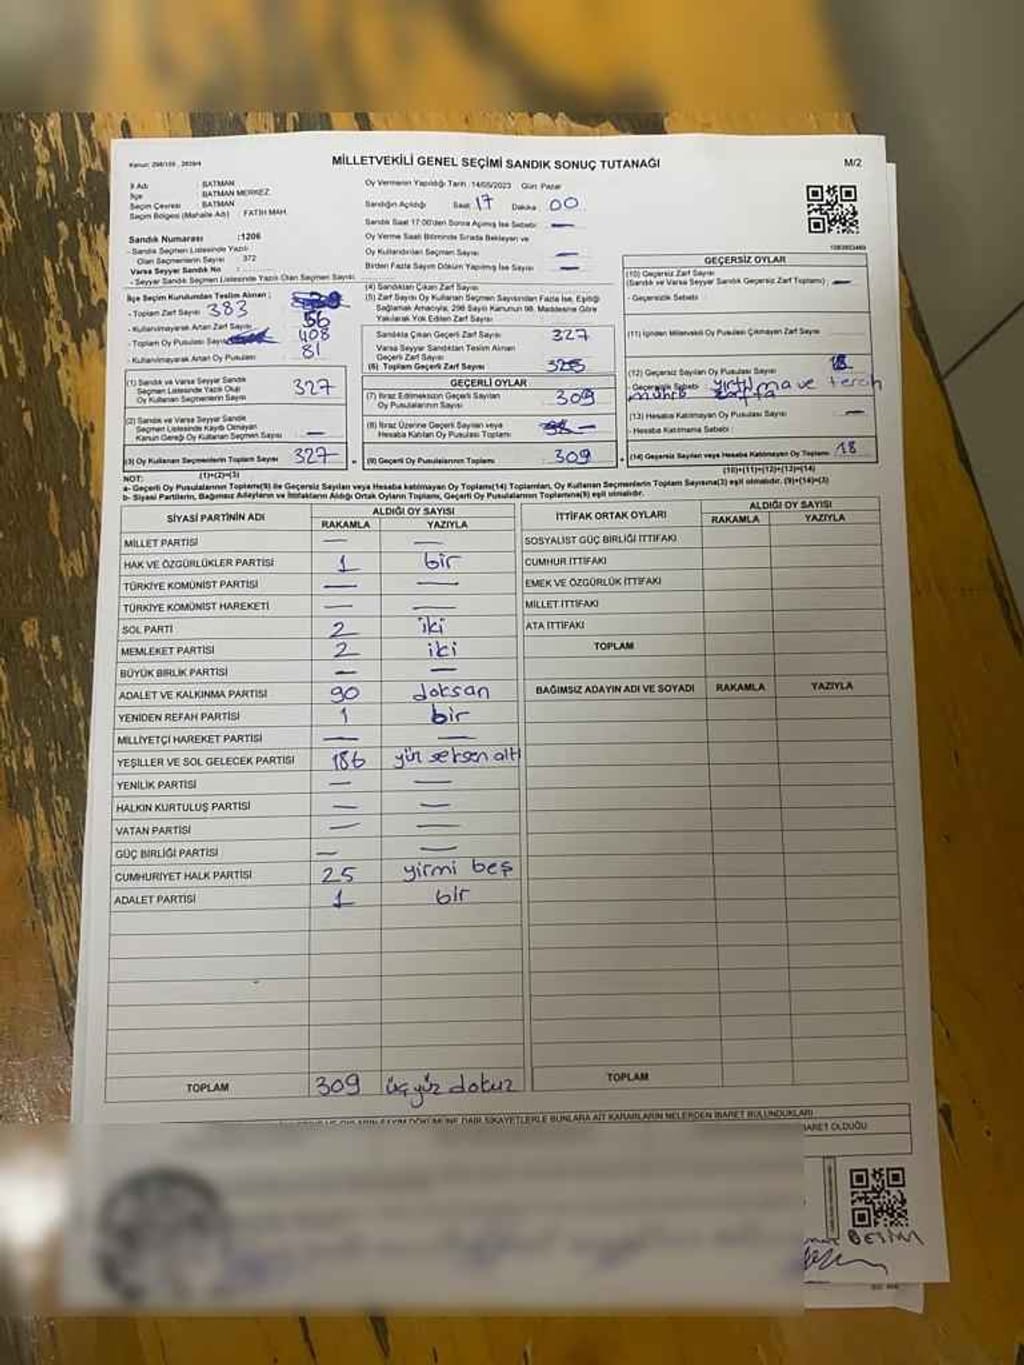 Kanun: 298/105 , 2839/4
MİLLETVEKİLİ GENEL SEÇİMİ SANDIK SONUÇ TUTANAĞI
M/2
İl Adı : BATMAN
İlçe : BATMAN MERKEZ
Seçim Çevresi : BATMAN
Seçim Bölgesi (Mahalle Adı) : FATİH MAH.
Sandık Numarası :1206
- Sandık Seçmen Listesinde Yazılı
Olan Seçmenlerin Sayısı 372
Varsa Seyyar Sandık No :
- Seyyar Sandık Seçmen Listesinde Yazılı Olan Seçmen Sayısı
İlçe Seçim Kurulundan Teslim Alınan ;
- Toplam Zarf Sayısı 383
- Kullanılmayarak Artan Zarf Sayısı 56
- Toplam Oy Pusulası Sayısı 408
- Kullanılmayarak Artan Oy Pusulası 81
(1) Sandık ve Varsa Seyyar Sandık
Seçmen Listesinde Yazılı Olup
Oy Kullanan Seçmenlerin Sayısı 327
(2) Sandık ve Varsa Seyyar Sandık
Seçmen Listesinde Kaydı Olmayan
Kanun Gereği Oy Kullanan Seçmen Sayısı —
(3) Oy Kullanan Seçmenlerin Toplam Sayısı 327
(1)+(2)=(3)
Oy Vermenin Yapıldığı Tarih :14/05/2023 Gün: Pazar
Sandığın Açıldığı Saat: 17 Dakika: 00
Sandık Saat 17:00'den Sonra Açılmış İse Sebebi: —
Oy Verme Saati Bitiminde Sırada Bekleyen ve
Oy Kullandırılan Seçmen Sayısı —
Birden Fazla Sayım Döküm Yapılmış İse Sayısı —
(4) Sandıktan Çıkan Zarf Sayısı
(5) Zarf Sayısı Oy Kullanan Seçmen Sayısından Fazla İse, Eşitliği
Sağlamak Amacıyla, 298 Sayılı Kanunun 98. Maddesine Göre
Yakılarak Yok Edilen Zarf Sayısı
Sandıkta Çıkan Geçerli Zarf Sayısı 327
Varsa Seyyar Sandıktan Teslim Alınan
Geçerli Zarf Sayısı
(6) Toplam Geçerli Zarf Sayısı
GEÇERLİ OYLAR
(7) İtiraz Edilmeksizin Geçerli Sayılan
Oy Pusulalarının Sayısı 309
(8) İtiraz Üzerine Geçerli Sayılan veya
Hesaba Katılan Oy Pusulası Toplamı —
(9) Geçerli Oy Pusulalarının Toplamı 309
GEÇERSİZ OYLAR
(10) Geçersiz Zarf Sayısı
(Sandık ve Varsa Seyyar Sandık Geçersiz Zarf Toplamı) —
- Geçersizlik Sebebi
(11) İçinden Milletvekili Oy Pusulası Çıkmayan Zarf Sayısı
(12) Geçersiz Sayılan Oy Pusulası Sayısı 18
- Geçersizlik Sebebi yırtılma ve tercih
(13) Hesaba Katılmayan Oy Pusulası Sayısı —
- Hesaba Katılmama Sebebi :
(14) Geçersiz Sayılan veya Hesaba Katılmayan Oy Toplamı 18
(10)+(11)+(12)+(13)=(14)
NOT:
a- Geçerli Oy Pusulalarının Toplamı(9) ile Geçersiz Sayılan veya Hesaba katılmayan Oy Toplamı(14) Toplamları, Oy Kullanan Seçmenlerin Toplam Sayısına(3) eşit olmalıdır. (9)+(14)=(3)
b- Siyasi Partilerin, Bağımsız Adayların ve İttifakların Aldığı Ortak Oyların Toplamı, Geçerli Oy Pusulalarının Toplamına(9) eşit olmalıdır.
SİYASİ PARTİNİN ADI ALDIĞI OY SAYISI
RAKAMLA YAZIYLA
MİLLET PARTİSİ — —
HAK VE ÖZGÜRLÜKLER PARTİSİ 1 bir
TÜRKİYE KOMÜNİST PARTİSİ — —
TÜRKİYE KOMÜNİST HAREKETİ — —
SOL PARTİ 2 iki
MEMLEKET PARTİSİ 2 iki
BÜYÜK BİRLİK PARTİSİ — —
ADALET VE KALKINMA PARTİSİ 90 doksan
YENİDEN REFAH PARTİSİ 1 bir
MİLLİYETÇİ HAREKET PARTİSİ — —
YEŞİLLER VE SOL GELECEK PARTİSİ 186 yüz seksen altı
YENİLİK PARTİSİ — —
HALKIN KURTULUŞ PARTİSİ — —
VATAN PARTİSİ — —
GÜÇ BİRLİĞİ PARTİSİ — —
CUMHURİYET HALK PARTİSİ 25 yirmi beş
ADALET PARTİSİ 1 bir
TOPLAM 309 üçyüz dokuz
İTTİFAK ORTAK OYLARI ALDIĞI OY SAYISI
RAKAMLA YAZIYLA
SOSYALİST GÜÇ BİRLİĞİ İTTİFAKI
CUMHUR İTTİFAKI
EMEK VE ÖZGÜRLÜK İTTİFAKI
MİLLET İTTİFAKI
ATA İTTİFAKI
TOPLAM
BAĞIMSIZ ADAYIN ADI VE SOYADI RAKAMLA YAZIYLA
TOPLAM
SAYIM DÖKÜMÜNE DAİR ŞİKAYETLERLE BUNLARA AİT KARARLARIN NELERDEN İBARET BULUNDUKLARI
İBARET OLDUĞU